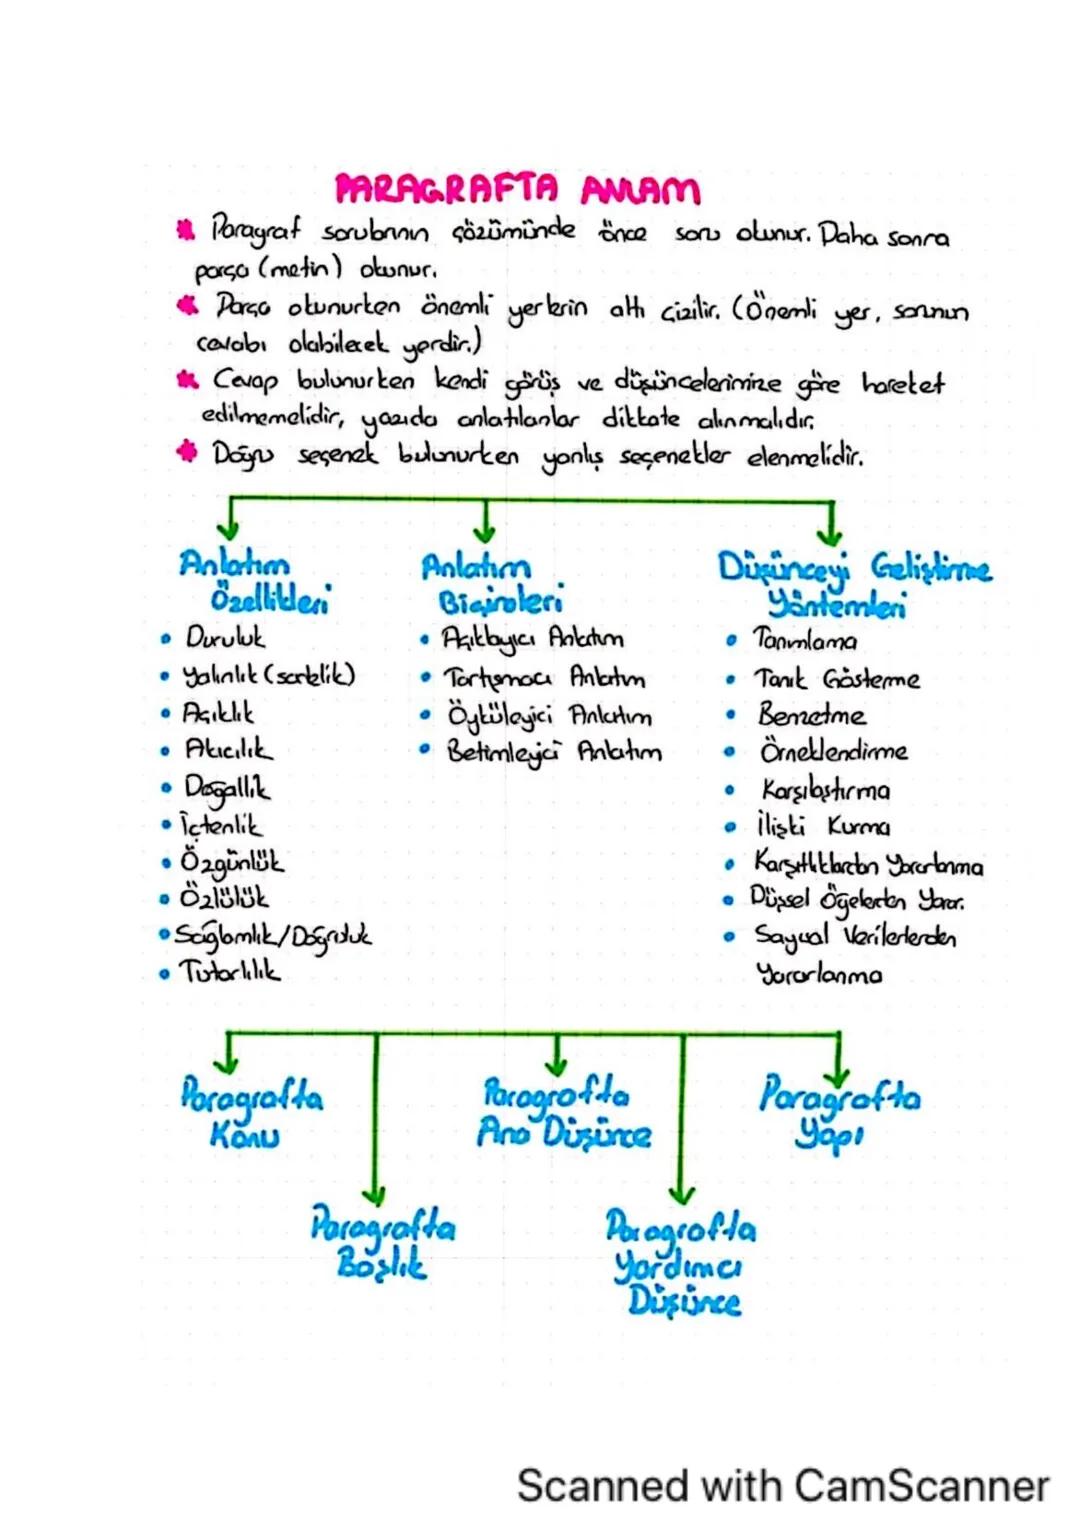 PARAGRAFTA ANLAM
* Paragraf sorularının çözümünde önce soru okunur. Daha sonra
parça (metin) okunur.
* Parça okunurken önemli yerlerin altı çizilir. (Önemli yer, sorunun
cevabı olabilecek yerdir.)
* Cevap bulunurken kendi görüş ve düşüncelerimize göre hareket
edilmemelidir, yazıda anlatılanlar dikkate alınmalıdır.
* Doğru seçenek bulunurken yanlış seçenekler elenmelidir.
Anlatım
Özellikleri
• Duruluk
• Yalınlık (sadelik)
• Açıklık
• Akıcılık
• Doğallık
• İçtenlik
• Özgünlük
• Özlülük
• Sağlamlık/Doğruluk
• Tutarlılık
Anlatım
Biçimleri
• Açıklayıcı Anlatım
• Tartışmacı Anlatım
• Öyküleyici Anlatım
• Betimleyici Anlatım
Düşünceyi Geliştirme
Yöntemleri
• Tanımlama
• Tanık Gösterme
• Benzetme
• Örneklendirme
• Karşılaştırma
• İlişki Kurma
• Karşıtlıklardan Yararlanma
• Düşsel Öğelerden Yarar.
• Sayısal Verilerlerden
Yararlanma
Paragrafta
Konu
Paragrafta
Başlık
Paragrafta
Ana Düşünce
Paragrafta
Yardımcı
Düşünce
Paragrafta
Yapı
Scanned with CamScanner